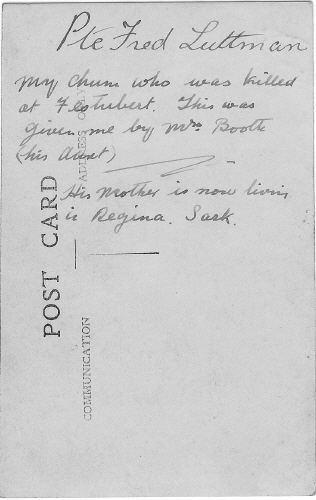 Pte Fred Luttman
My chum who was killed
at Festubert. This was
given me by Mrs Booth
(his Aunt)
His Mother is now livin
in Regina. Sask.
POST CARD
ADDRESS O
COMMUNICATION